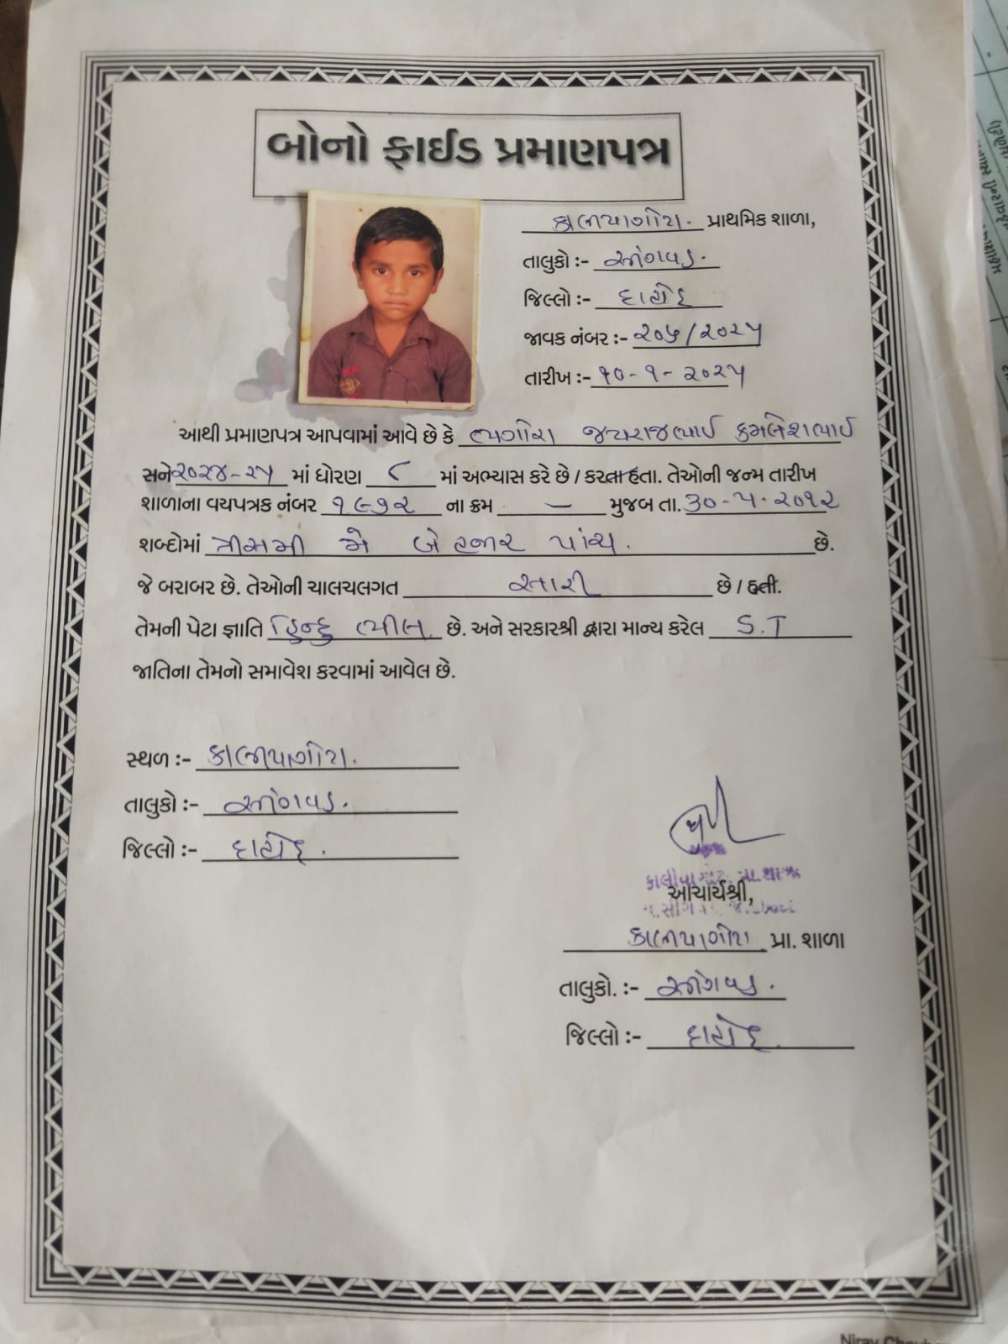 બોનો ફાઈડ પ્રમાણપત્ર
કાળીયાગોરા. પ્રાથમિક શાળા,
તાલુકો :- સીંગવડ.
જિલ્લો :- દાહોદ
જાવક નંબર :- ૨૦૫/૨૦૨૫
તારીખ :- ૧૦-૧-૨૦૨૫
આથી પ્રમાણપત્ર આપવામાં આવે છે કે ભગોરા જયરાજભાઈ કમલેશભાઈ
સને ૨૦૨૪-૨૫ માં ધોરણ ૮ માં અભ્યાસ કરે છે / કરતા હતા. તેઓની જન્મ તારીખ
શાળાના વયપત્રક નંબર ૧૯૭૨ ના ક્રમ — મુજબ તા. ૩૦-૫-૨૦૧૨
શબ્દોમાં ત્રીસમી મે બે હજાર પાંચ. છે.
જે બરાબર છે. તેઓની ચાલચલગત સારી છે / હતી.
તેમની પેટા જ્ઞાતિ હિન્દુ ભીલ છે. અને સરકારશ્રી દ્વારા માન્ય કરેલ S.T
જાતિના તેમનો સમાવેશ કરવામાં આવેલ છે.
સ્થળ :- કાળીયાગોરા.
તાલુકો :- સીંગવડ.
જિલ્લો :- દાહોદ.
આચાર્યશ્રી,
કાળીયાગોરા પ્રા. શાળા
તાલુકો. :- સીંગવડ.
જિલ્લો :- દાહોદ.